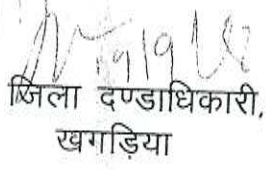 जिला दण्डाधिकारी,
खगड़िया